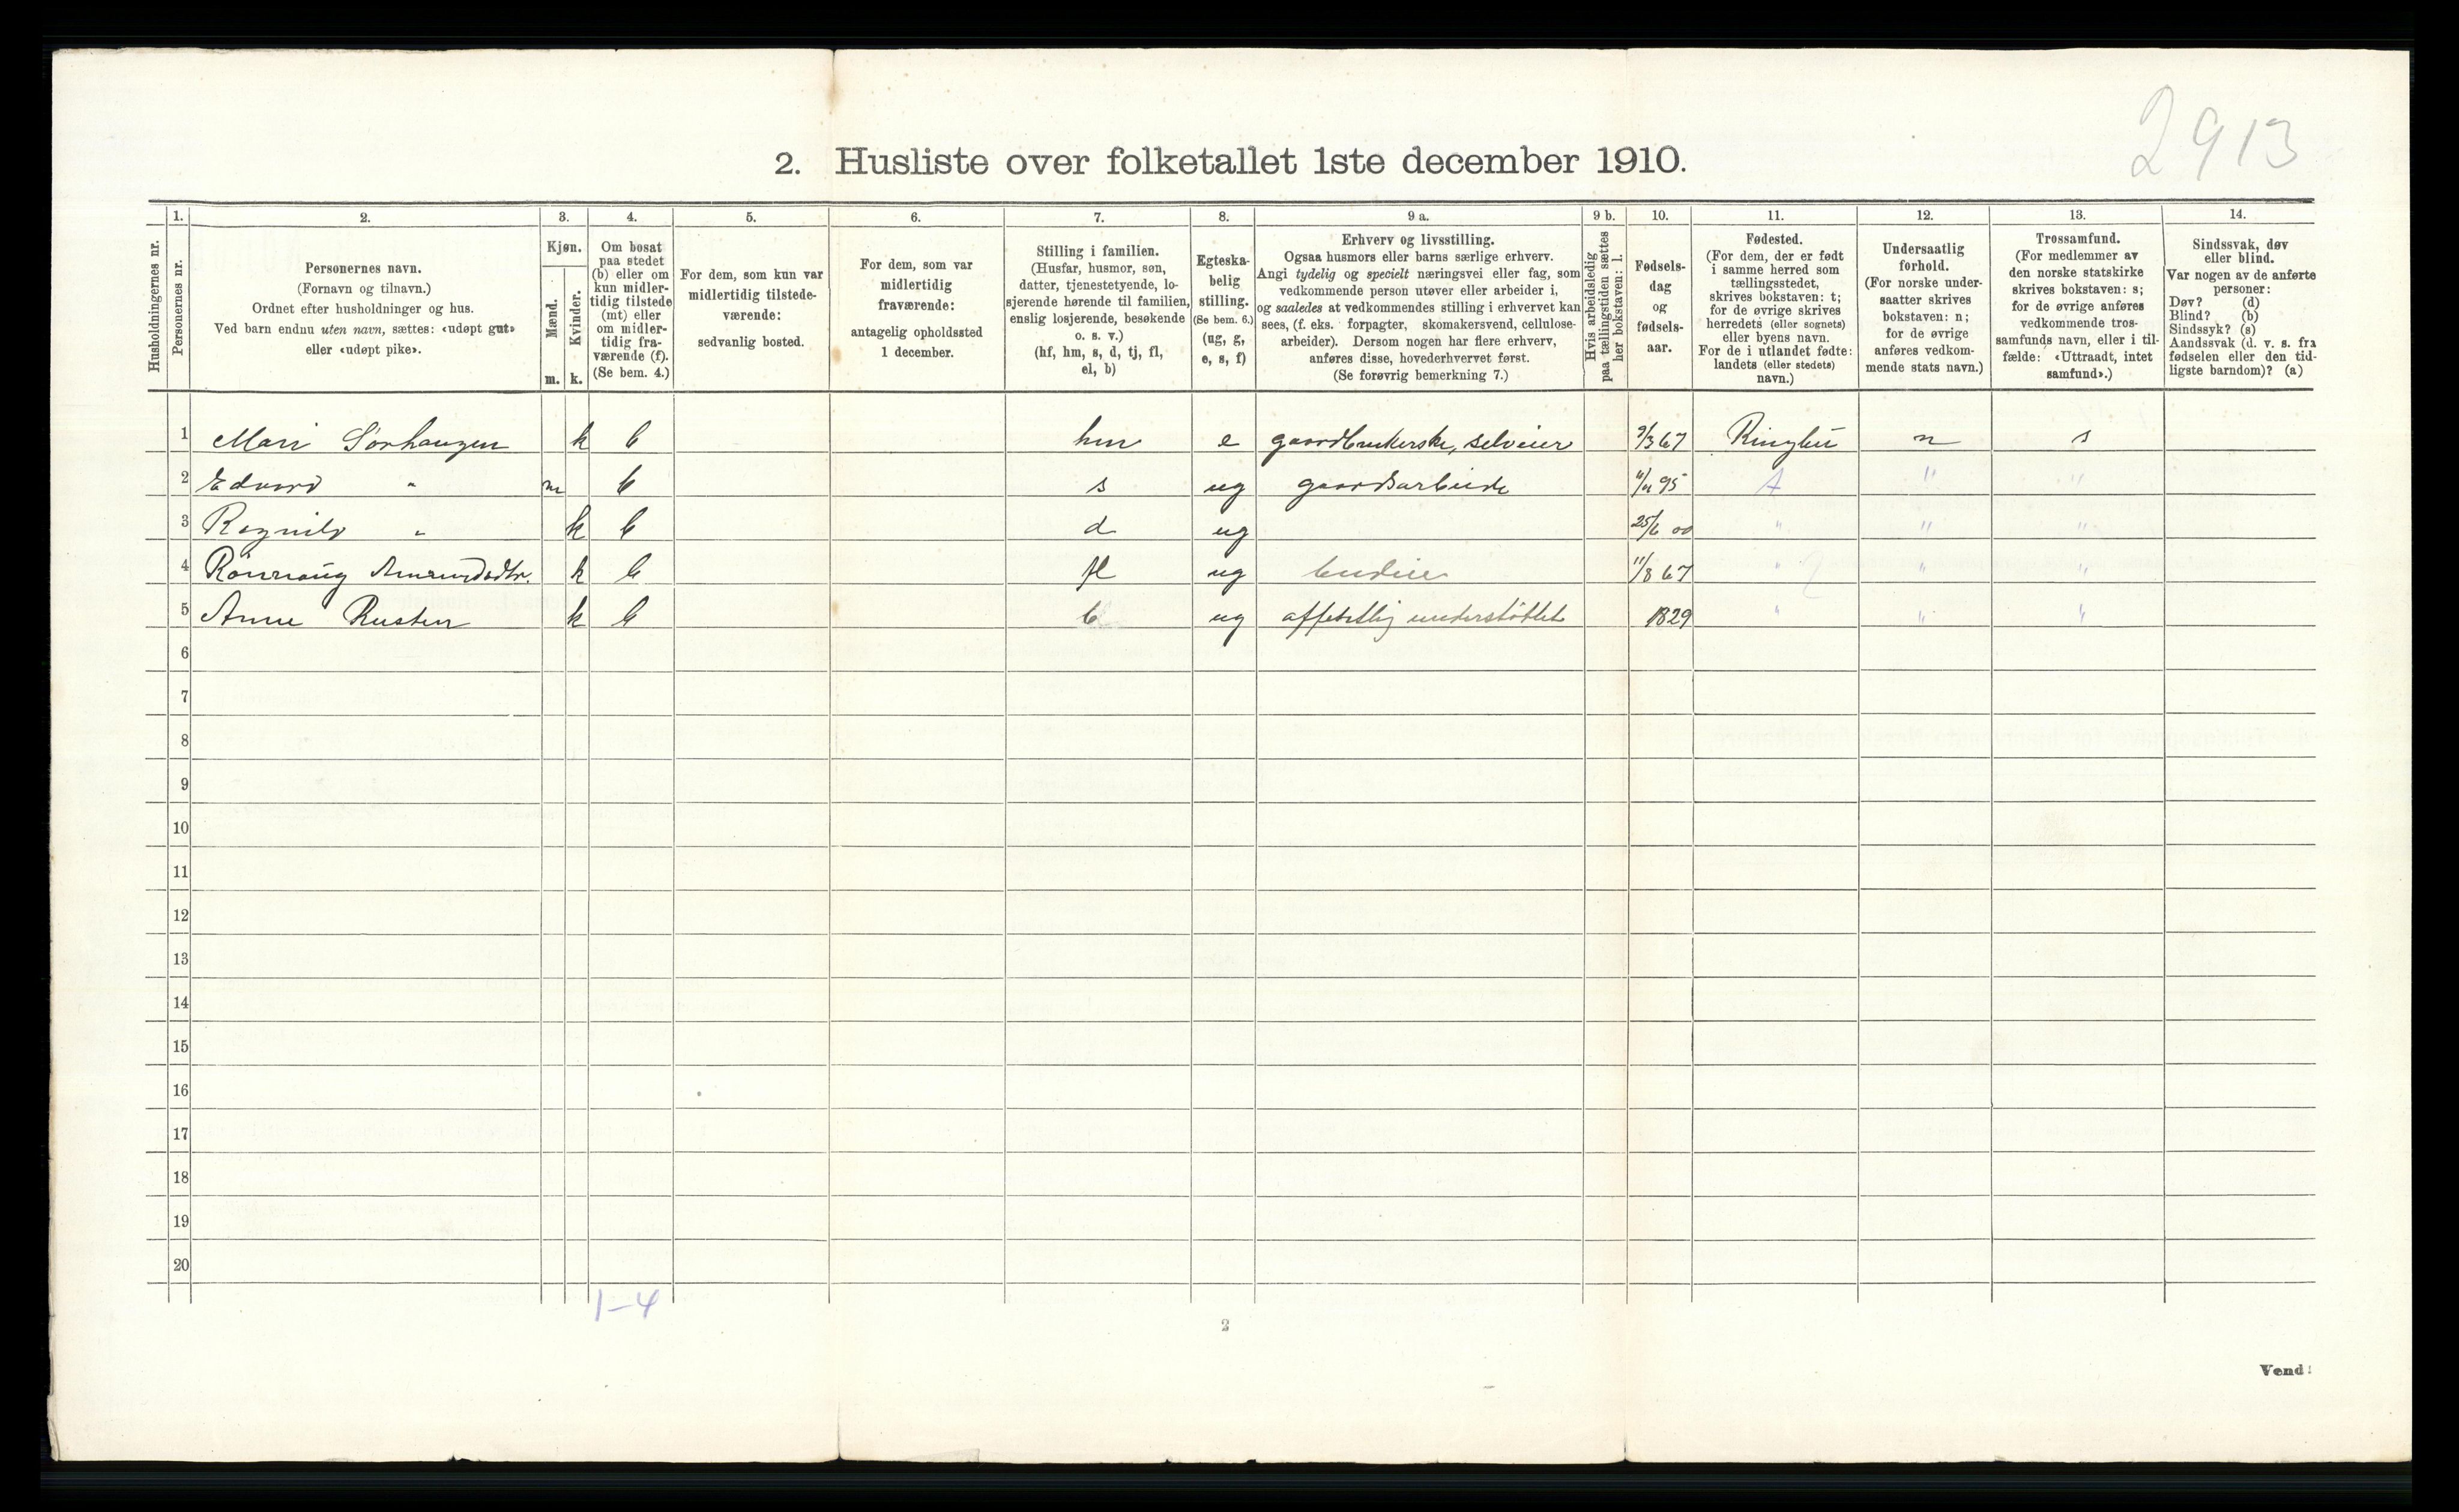 2913
2. Husliste over folketallet 1ste december 1910.
Husholdningernes nr.
1.
Personernes nr.
2.
Personernes navn.
(Fornavn og tilnavn.)
Ordnet efter husholdninger og hus.
Ved barn endnu uten navn, sættes: «udøpt gut»
eller «udøpt pike».
3.
Kjøn.
Mænd.
Kvinder.
m. k.
4.
Om bosat
paa stedet
(b) eller om
kun midler-
tidig tilstede
(mt) eller
om midler-
tidig fra-
værende (f).
(Se bem. 4.)
5.
For dem, som kun var
midlertidig tilstede-
værende:
sedvanlig bosted.
6.
For dem, som var
midlertidig
fraværende:
antagelig opholdssted
1 december.
7.
Stilling i familien.
(Husfar, husmor, søn,
datter, tjenestetyende, lo-
sjerende hørende til familien,
enslig losjerende, besøkende
o. s. v.)
(hf, hm, s, d, tj, fl,
el, b)
8.
Egteska-
belig
stilling.
(Se bem. 6.)
(ug, g,
e, s, f)
9 a.
Erhverv og livsstilling.
Ogsaa husmors eller barns særlige erhverv.
Angi tydelig og specielt næringsvei eller fag, som
vedkommende person utøver eller arbeider i,
og saaledes at vedkommendes stilling i erhvervet kan
sees, (f. eks. forpagter, skomakersvend, cellulose-
arbeider). Dersom nogen har flere erhverv,
anføres disse, hovederhvervet først.
(Se forøvrig bemerkning 7.)
9 b.
Hvis arbeidsledig
paa tællingstiden sættes
her bokstaven: l.
10.
Fødsels-
dag
og
fødsels-
aar.
11.
Fødested.
(For dem, der er født
i samme herred som
tællingsstedet,
skrives bokstaven: t;
for de øvrige skrives
herredets (eller sognets)
eller byens navn.
For de i utlandet fødte:
landets (eller stedets)
navn.)
12.
Undersaatlig
forhold.
(For norske under-
saatter skrives
bokstaven: n;
for de øvrige
anføres vedkom-
mende stats navn.)
13.
Trossamfund.
(For medlemmer av
den norske statskirke
skrives bokstaven: s;
for de øvrige anføres
vedkommende tros-
samfunds navn, eller i til-
fælde: «Uttraadt, intet
samfund».)
14.
Sindssvak, døv
eller blind.
Var nogen av de anførte
personer:
Døv? (d)
Blind? (b)
Sindssyk? (s)
Aandssvak (d. v. s. fra
fødselen eller den tid-
ligste barndom)? (a)
1 Mari Sørhaugen k b hm e gaardbrukerske, selveier 9/3 67 Ringebu n s
2 Edvard " m b s ug gaardsarbeide 95 t " "
3 Ragnild " k b d ug 25/6 00 " " "
4 Rönnaug Amundsdtr. k b fl ug budeie 11/8 67 " " "
5 Anne Rusten k b b ug offentlig understöttet 1829 " " "
6
7
8
9
10
11
12
13
14
15
16
17
18
19
20
1-4
2
Vend!